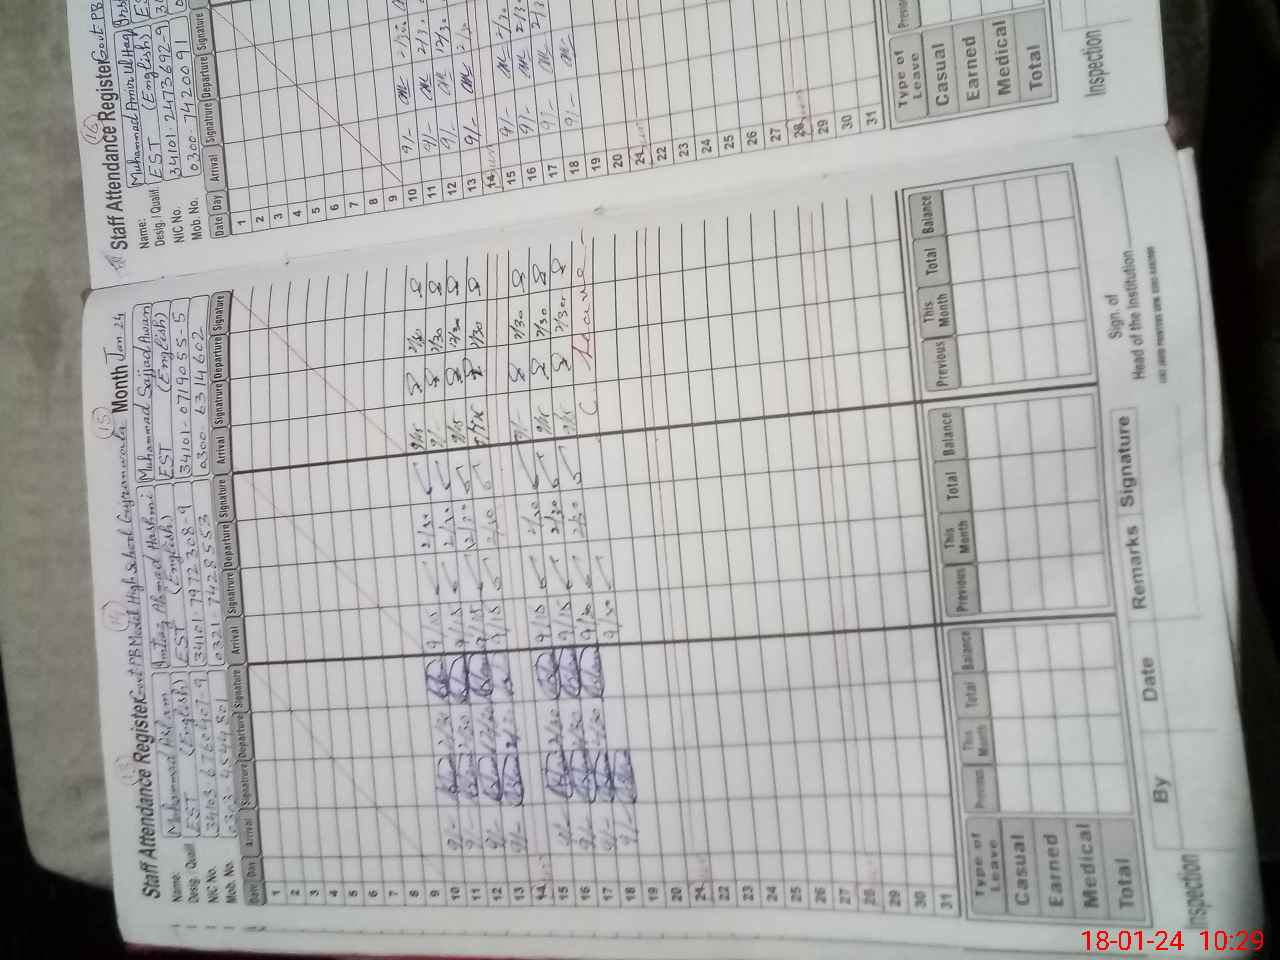 Staff Attendance Register Govt PB Model High School Gujranwala Month Jan 24
(13) (14) (15)
Name: Muhammad Aslam Imtiaz Ahmad Hashmi Muhammad Sajjad Awan
Desig. / Qualif EST (English) EST (English) EST (English)
NIC No. 34101-7972308-9 34101-0719055-5
Mob. No. 0303 4544801 0321-7428553 0300-6314602
Date Day Arrival Signature Departure Signature Arrival Signature Departure Signature Arrival Signature Departure Signature
1
2
3
4
5
6
7
8
9
10 9/- 2/30 9/15 2/30 9/15 2/30
11 9/- 2/30 9/15 2/30 9/- 2/30
12 9/- 9/15 12/30 9/15 12/30
13 9/- 2/30 9/15 2/30 2/30
14
15 9/- 2/30 9/15 2/30 9/- 2/30
16 9/- 2/30 9/15 2/30 9/15 2/30
17 9/- 2/30 9/30 2/30 9/15 2/30
18 9/- 9/30 C Leave
19
20
21
22
23
24
25
26
27
28
29
30
31
Type of Leave Previous This Month Total Balance Previous This Month Total Balance Previous This Month Total Balance
Casual
Earned
Medical
Total
Inspection By Date Remarks Signature
Sign. of
Head of the Institution
(16)
Staff Attendance Register Govt PB
Name: Muhammad Amir ul Haq
Desig. / Qualif EST (English)
NIC No. 34101-2473692-9
Mob. No. 0300-7420091
Date Day Arrival Signature Departure Signature
1
2
3
4
5
6
7
8
9
10 9/- 2/30
11 9/- 2/30
12 9/- 12/30
13 9/- 2/30
14
15 9/- 2/30
16 9/- 2/30
17 9/- 2/30
18 9/-
19
20
21
22
23
24
25
26
27
28
29
30
31
Type of Leave
Casual
Earned
Medical
Total
Inspection
18-01-24 10:29